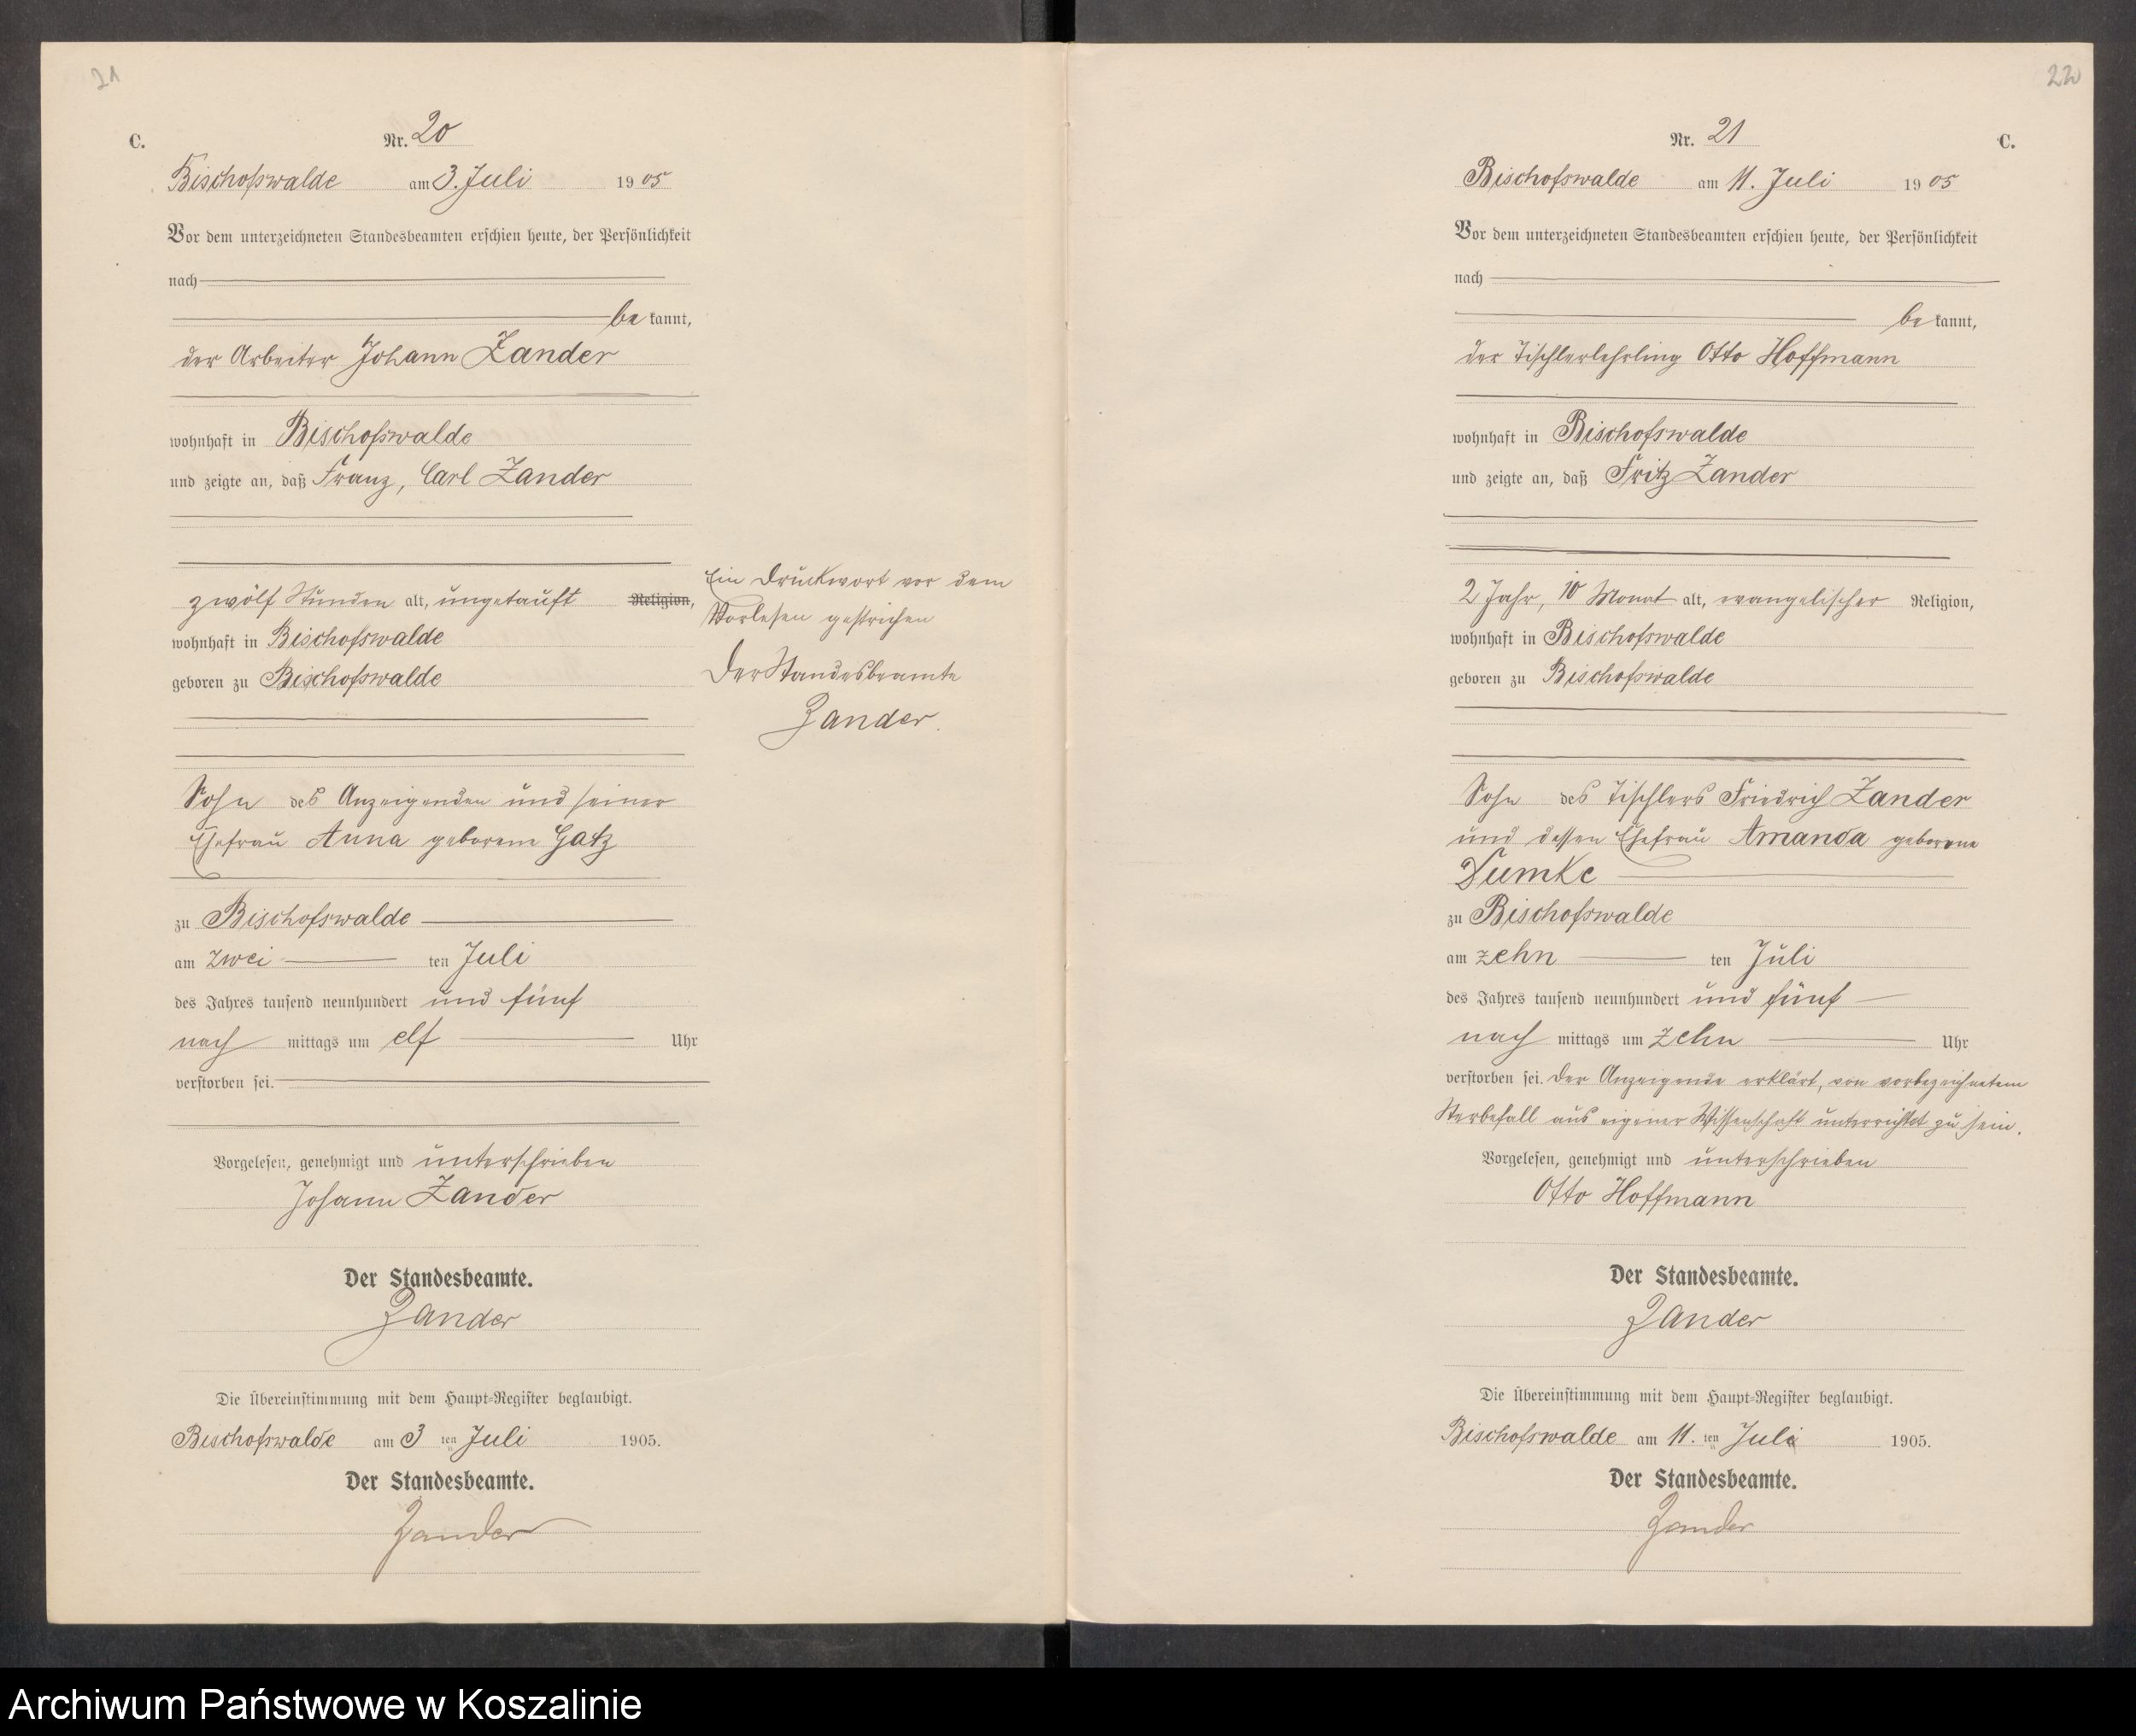 21
C.
Nr. 20
Bischofswalde am 3. Juli 1905
Vor dem unterzeichneten Standesbeamten erschien heute, der Persönlichkeit
nach
be kannt,
der Arbeiter Johann Zander
wohnhaft in Bischofswalde
und zeigte an, daß Franz, Carl Zander
zwölf Stunden alt, ungetauft Religion,
wohnhaft in Bischofswalde
geboren zu Bischofswalde
Sohn des Anzeigenden und seiner
Ehefrau Anna geborene Gatz
zu Bischofswalde
am zwei ten Juli
des Jahres tausend neunhundert und fünf
nach mittags um elf Uhr
verstorben sei.
Vorgelesen, genehmigt und unterschrieben
Johann Zander
Der Standesbeamte.
Zander
Die Übereinstimmung mit dem Haupt-Register beglaubigt.
Bischofswalde am 3 ten Juli 1905.
Der Standesbeamte.
Zander
Ein Druckwort vor dem
Vorlesen gestrichen
Der Standesbeamte
Zander.
22
Nr. 21
C.
Bischofswalde am 11. Juli 1905
Vor dem unterzeichneten Standesbeamten erschien heute, der Persönlichkeit
nach
be kannt,
der Tischlerlehrling Otto Hoffmann
wohnhaft in Bischofswalde
und zeigte an, daß Fritz Zander
2 Jahr, 10 Monat alt, evangelischer Religion,
wohnhaft in Bischofswalde
geboren zu Bischofswalde
Sohn des Tischlers Friedrich Zander
und dessen Ehefrau Amanda geborene
Dumke
zu Bischofswalde
am zehn ten Juli
des Jahres tausend neunhundert und fünf
nach mittags um zehn Uhr
verstorben sei. Der Anzeigende erklärt, von vorbezeichnetem
Sterbefall aus eigener Wissenschaft unterrichtet zu sein.
Vorgelesen, genehmigt und unterschrieben
Otto Hoffmann
Der Standesbeamte.
Zander
Die Übereinstimmung mit dem Haupt-Register beglaubigt.
Bischofswalde am 11. ten Juli 1905.
Der Standesbeamte.
Zander
Archiwum Państwowe w Koszalinie